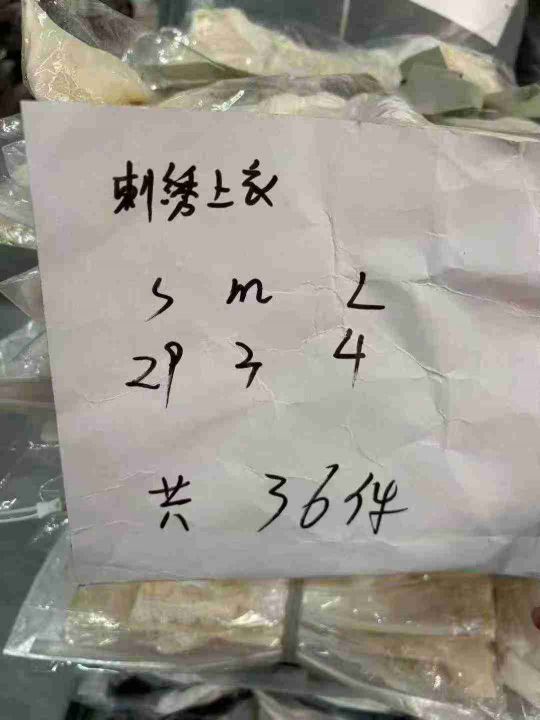 刺绣上衣
S M L
29 3 4
共 36件